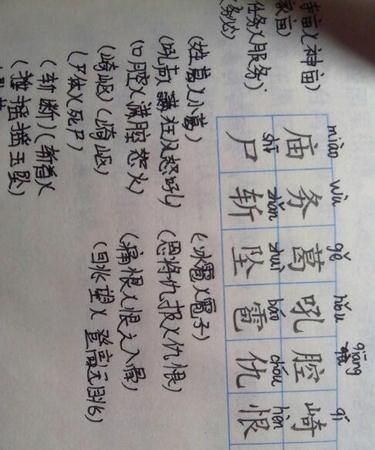 miào wù gě hǒu qiāng qí
庙务葛吼腔崎
shī zhǎn zhuì báo chóu hèn
尸斩坠雹仇恨
神庙)
任务)(服务)
务必)
(姓葛)(小葛)
(冰雹)(雹子)
(吼声)(狂风怒吼)
(恩将仇报)(仇恨)
(口腔)(满腔怒火)
(痛恨)(恨之入骨)
(崎岖)(崎岖)
(尸体)(死尸)
(斩断)(斩首)
玉坠)